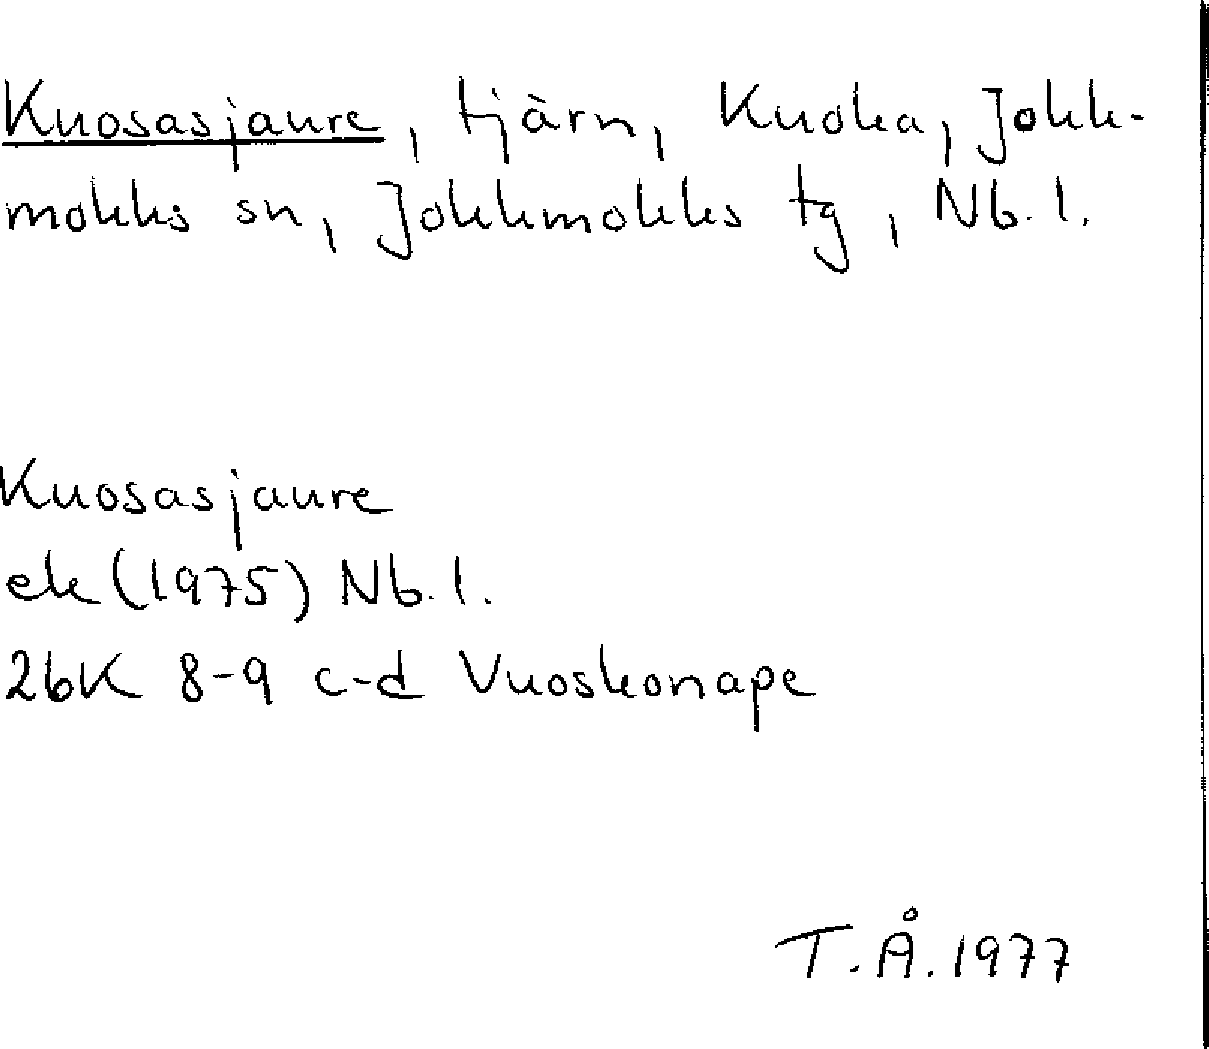 Kuosasjaure, tjärn, Kuoka, Jokk-
mokks sn, Jokkmokks tg, Nb. l.
Kuosasjaure
ek (1975) Nb. l.
26K 8-9 c-d Vuoskonape
T. Å. 1977